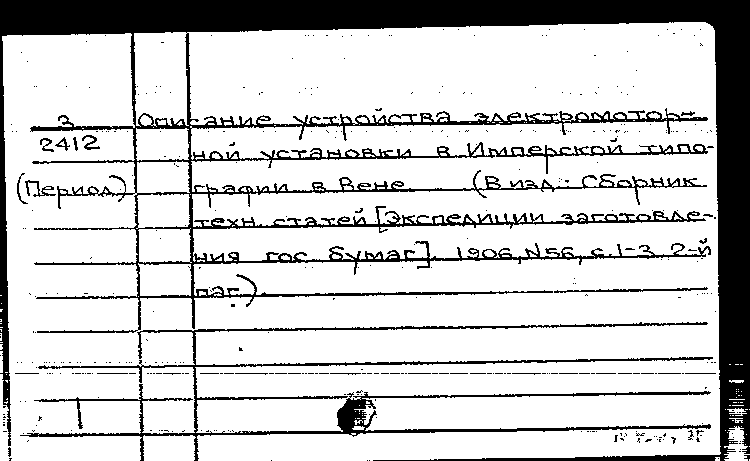 3 Описание устройства электромотор-
2412 ной установки в Имперской типо-
(Период) графии в Вене (В изд.: Сборник
техн. статей [Экспедиции заготовле-
ния гос. бумаг]. 1906, №56, с.1-3 2-й
паг.).
1